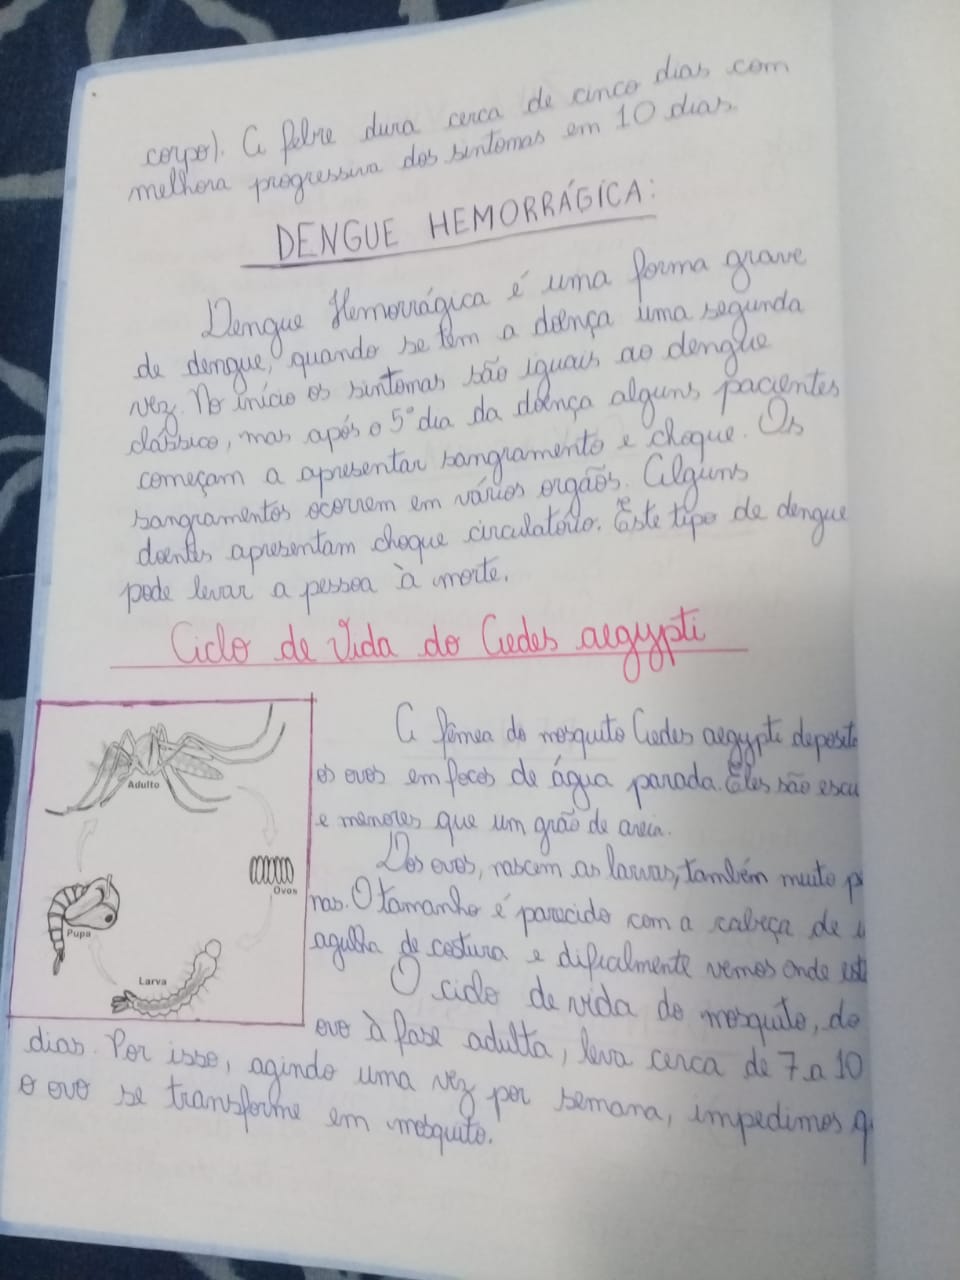 corpo). A febre dura cerca de cinco dias com
melhora progressiva dos sintomas em 10 dias.
DENGUE HEMORRÁGICA:
Dengue Hemorrágica é uma forma grave
de dengue, quando se tem a doença uma segunda
vez. No início os sintomas são iguais ao dengue
clássico, mas após o 5º dia da doença alguns pacientes
começam a apresentar sangramento e choque. Os
sangramentos ocorrem em vários orgãos. Alguns
doentes apresentam choque circulatório. Este tipo de dengue
pode levar a pessoa à morte.
Ciclo de Vida do Aedes aegypti
Adulto
Ovos
Pupa
Larva
A fêmea do mosquito Aedes aegypti deposit
os ovos em focos de água parada. Eles são escu
e menores que um grão de areia.
Dos ovos, nascem as larvas, também muito p
nas. O tamanho é parecido com a cabeça de
agulha de costura e dificilmente vemos onde est
O ciclo de vida do mosquito, do
ovo à fase adulta, leva cerca de 7 a 10
dias. Por isso, agindo uma vez por semana, impedimos q
o ovo se transforme em mosquito.